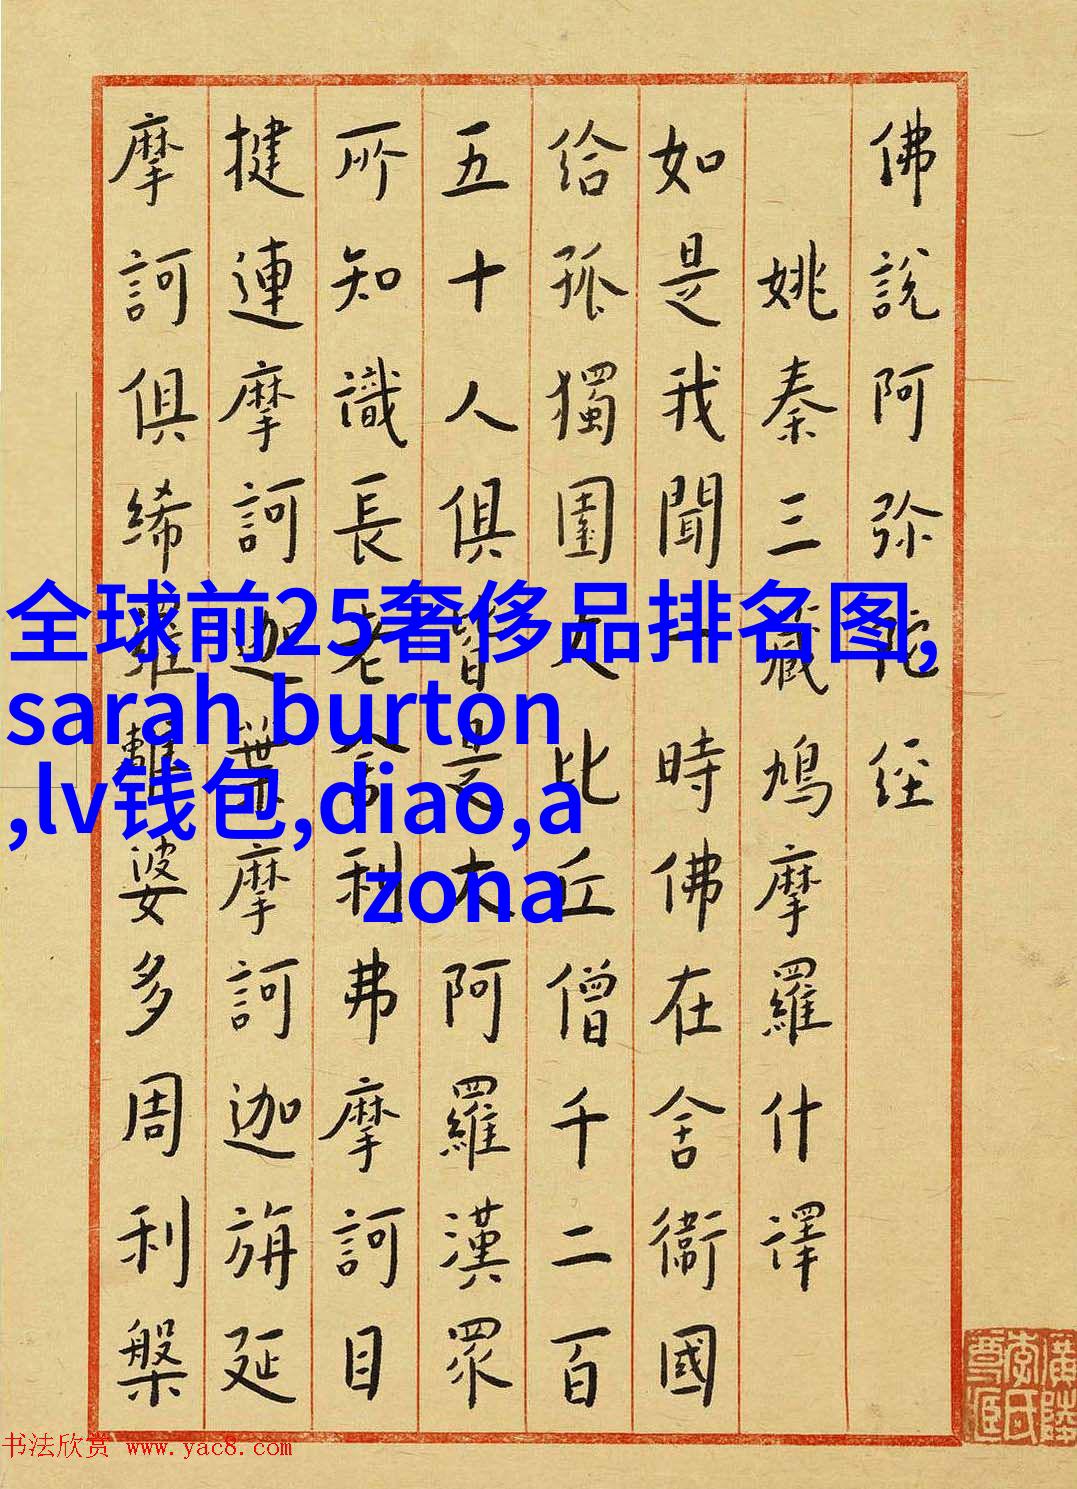 佛說阿弥陀經
姚秦三藏鳩摩羅什譯
如是我聞一時佛在舍衞國
给孤獨園大比丘僧千二百
五十人俱皆是大阿羅漢眾
所知識長老舍利弗摩訶目
揵連摩訶迦葉摩訶迦旃延
摩訶俱絺羅離婆多周利槃
全球前25奢侈品排名图,
sarah burton
,lv钱包,diao,a
zona
书法欣赏 www.yac8.com